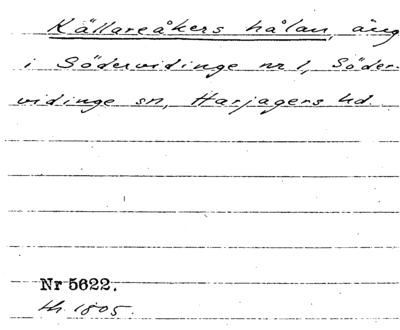 Källareåkers hålan, äng
i Södervidinge nr 1, Söder-
vidinge sn, Harjagers hd.
Nr 5622.
th. 1805.